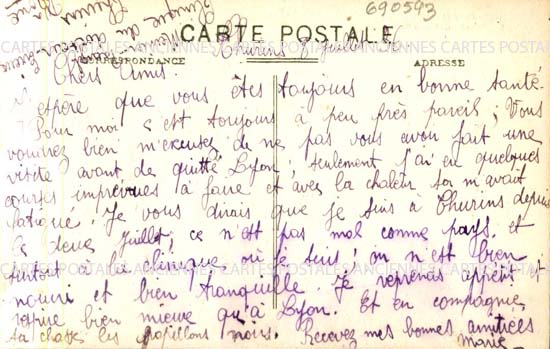 690593
CARTE POSTALE
CORRESPONDANCE
ADRESSE
Thurins 8 Juillet 36
Chers Amis.
espère que vous êtes toujours en bonne santé.
Pour moi c'est toujours à peu près pareil; Vous
voudrez bien m'excuser de ne pas vous avoir fait une
visite avant de quitté Lyon; seulement j'ai eu quelques
courses imprévues à faire et avec la chaleur m'avait
fatigué. Je vous dirais que je suis à Thurins depuis
le deux Juillet; ce n'est pas mal comme pays, et
surtout à la clinique où je suis; on n'est bien
nourri et bien tranquille. Je reprends appétit et
respire bien mieux qu'à Lyon. Et en compagnie
les papillons noirs. Recevez mes bonnes amitiées
Marie
Clinique du docteur
Thurins Rhône
CARTES POSTALES ANCIENNES